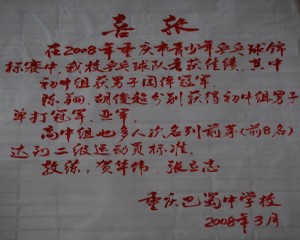 喜报
在2008年重庆市青少年乒乓球锦
标赛中,我校乒乓球队喜获佳绩。其中
初中组获男子团体冠军。
陈翔、胡俊超分别获得初中组男子
单打冠军、亚军。
高中组也多人次名列前茅(前8名)
达到二级运动员标准。
教练:贺华伟 张立志
重庆巴蜀中学校
2008年3月